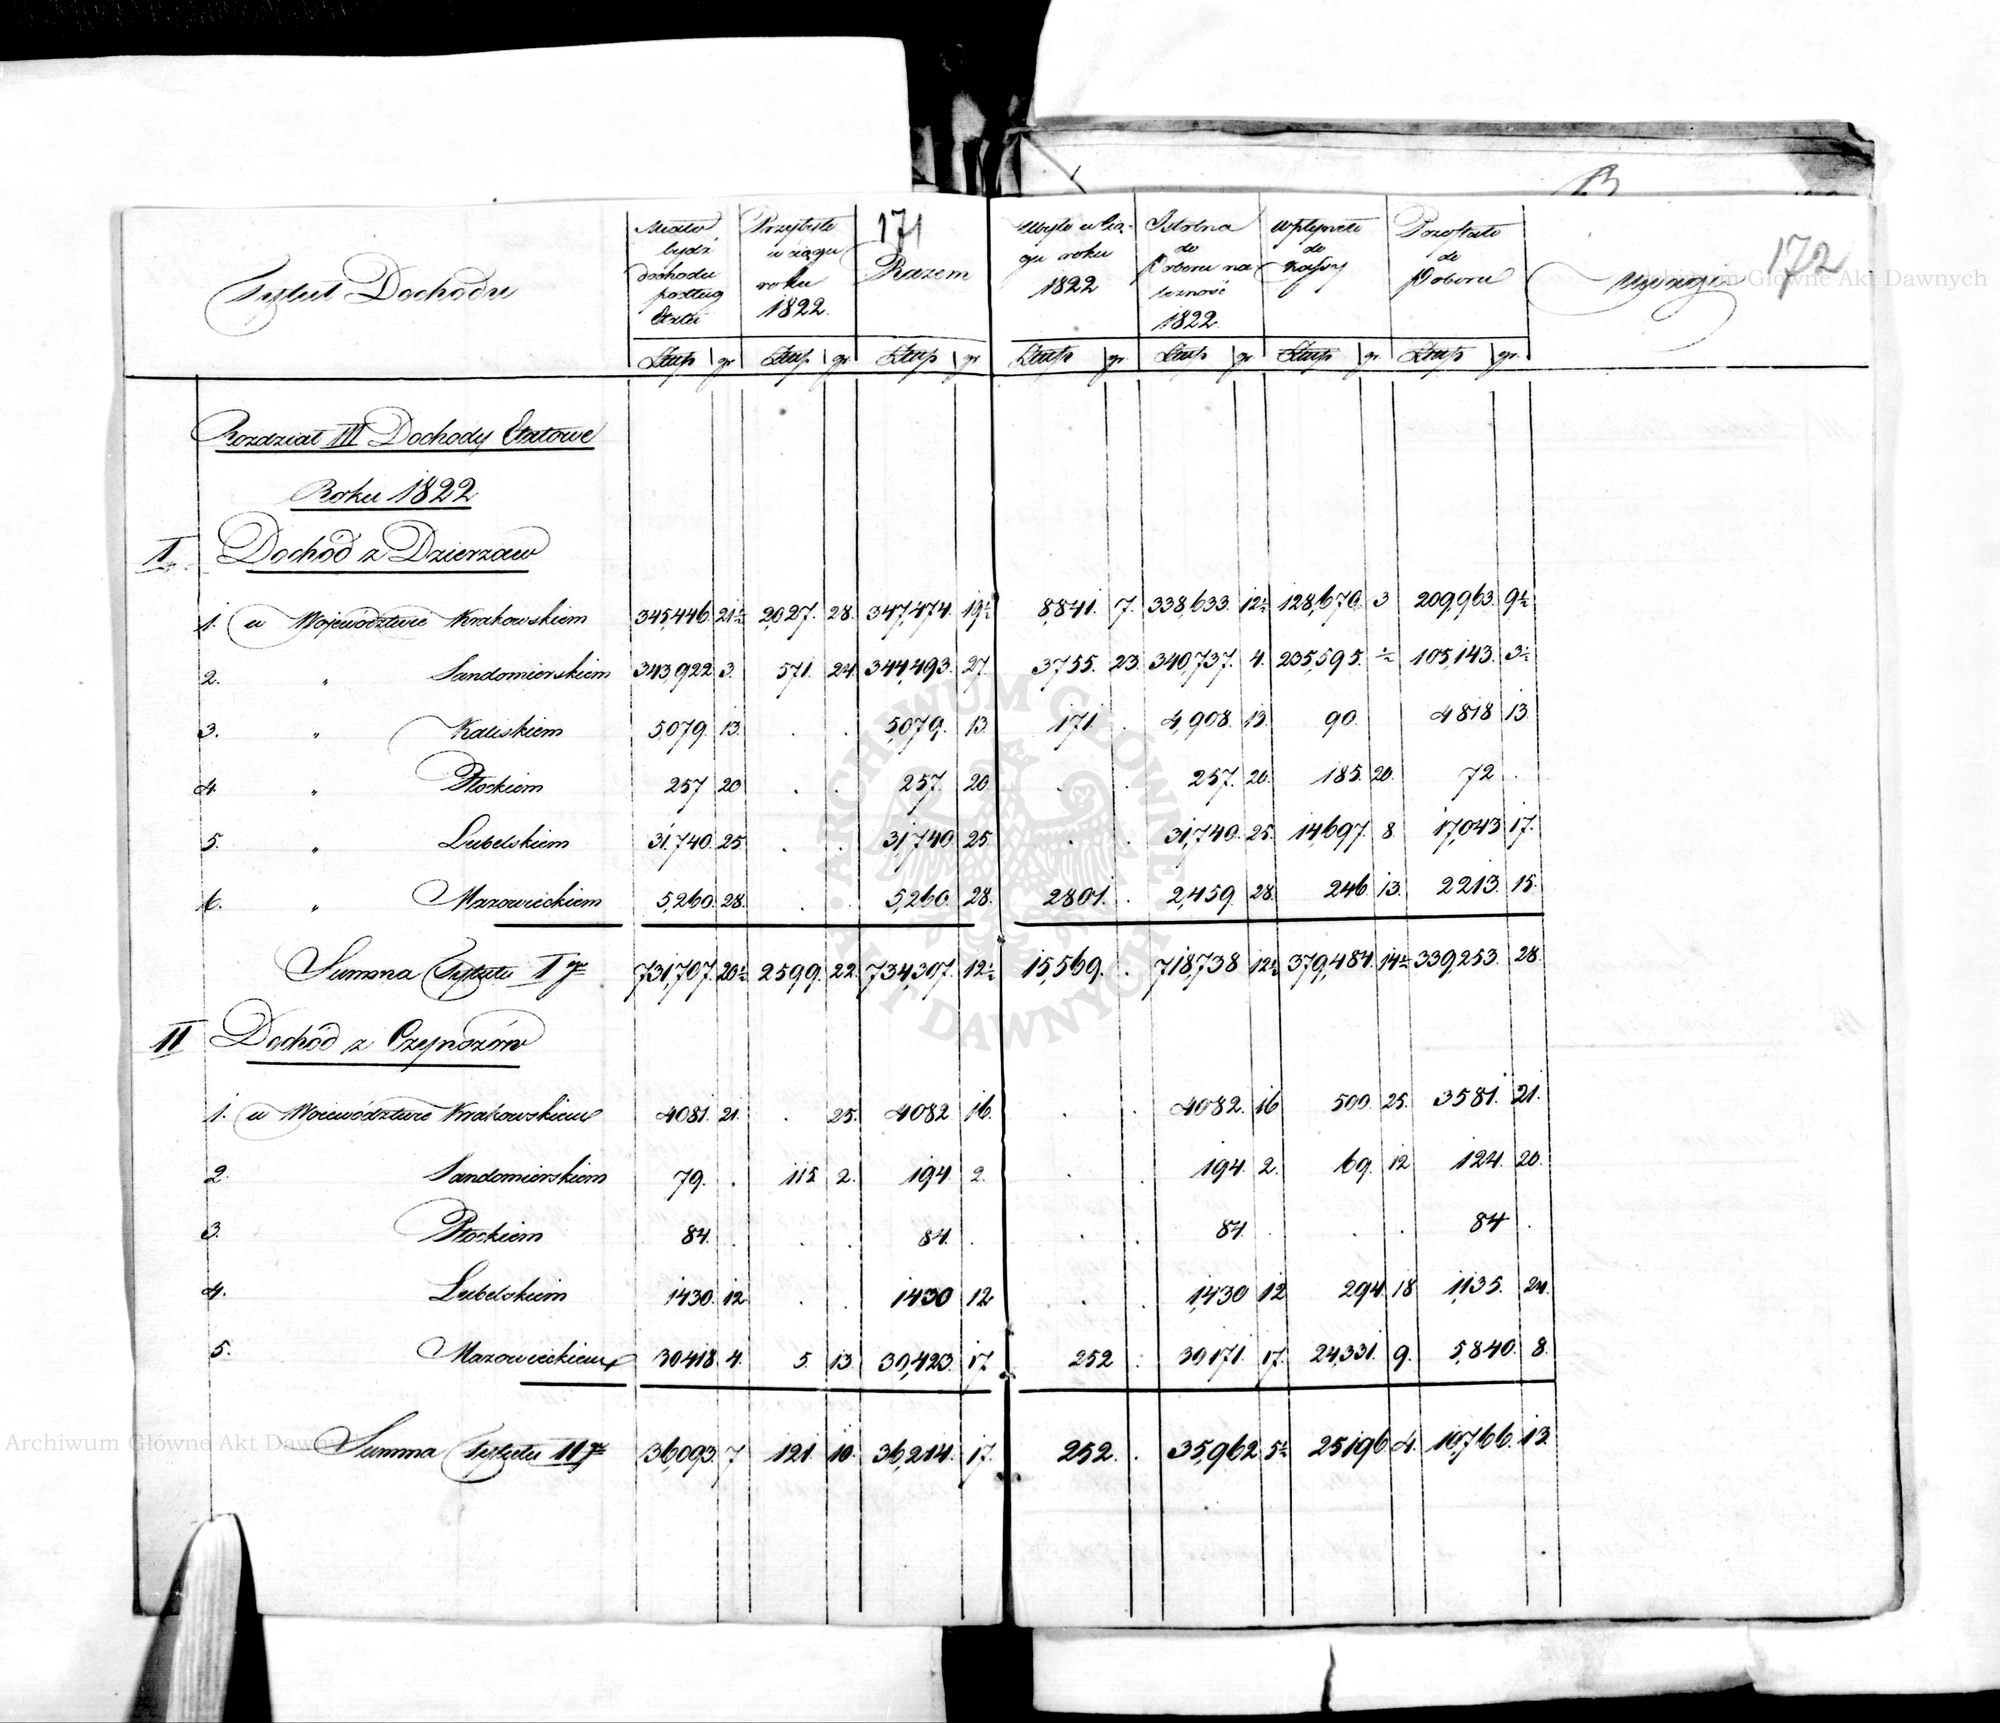 171
172
Tytuł Dochodu
Miało bydź dochodu podług Etatu
Przybyło w ciągu roku 1822.
Razem
Ubyło w Cią-gu roku 1822
Istotna do Poboru na leżność 1822.
Wpłynęło do Kassy
Pozostało do Poboru
Uwagi
Złłup gr Złłup gr. Złłup gr Złłup gr. Złłup gr Złłup gr. Złłup gr.
Rozdział III Dochody Etatowe
Roku 1822
I. Dochód z Dzierzaw
1. w Województwie Krakowskiem 345,446. 21½ 2027. 28. 347,474. 19½ 8,841. 7. 338,633. 12½ 128,670. 3 209,963. 9½
2. " Sandomierskiem 343,922 3. 571. 24. 344,493. 27. 3755. 23. 340,737. 4. 235,595. ½ 105,143. 3½
3. " Kaliskiem 5,079. 13. . . 5,079. 13 171 . 4,908. 13. 90. 4818 13.
4. " Płockiem 257 20 . . 257. 20 . . 257. 20. 185. 20. 72 .
5. " Lubelskiem 31,740. 25 . . 31,740 25. . . 31,740. 25. 14,697. 8. 17,043 17.
6. " Mazowieckiem 5,260. 28. . . 5,260. 28. 2801. . 2,459. 28. 246 13. 2213. 15.
Summa Tytułu I go 731,707. 20½ 2599. 22. 734,307. 12½ 15,569. . 718,738 12½ 379,484. 14½ 339,253. 28.
II Dochód z Czynszów
1. w Województwie Krakowskiem 4081. 21. . 25. 4082 16. . . 4082. 16 500. 25. 3581. 21.
2. Sandomierskiem 79. . 115 2. 194. 2. . . 194. 2. 69. 12 124. 20.
3. Płockiem 84. . . . 84. . . . 84. . . . 84 .
4. Lubelskiem 1430. 12 . . 1430 12 . . 1,430 12 294. 18 1,135. 24.
5. Mazowieckiem 30,418. 4. 5. 13. 30,423. 17 252 . 30,171. 17. 24,331. 9. 5,840. 8.
Summa Tytułu II go 36,093. 7 121. 10. 36,214. 17. 252. . 35,962. 5½ 25,196 4. 10,766. 13.
Archiwum Główne Akt Dawnych
ARCHIWUM GŁÓWNE AKT DAWNYCH
Archiwum Główne Akt Dawnych